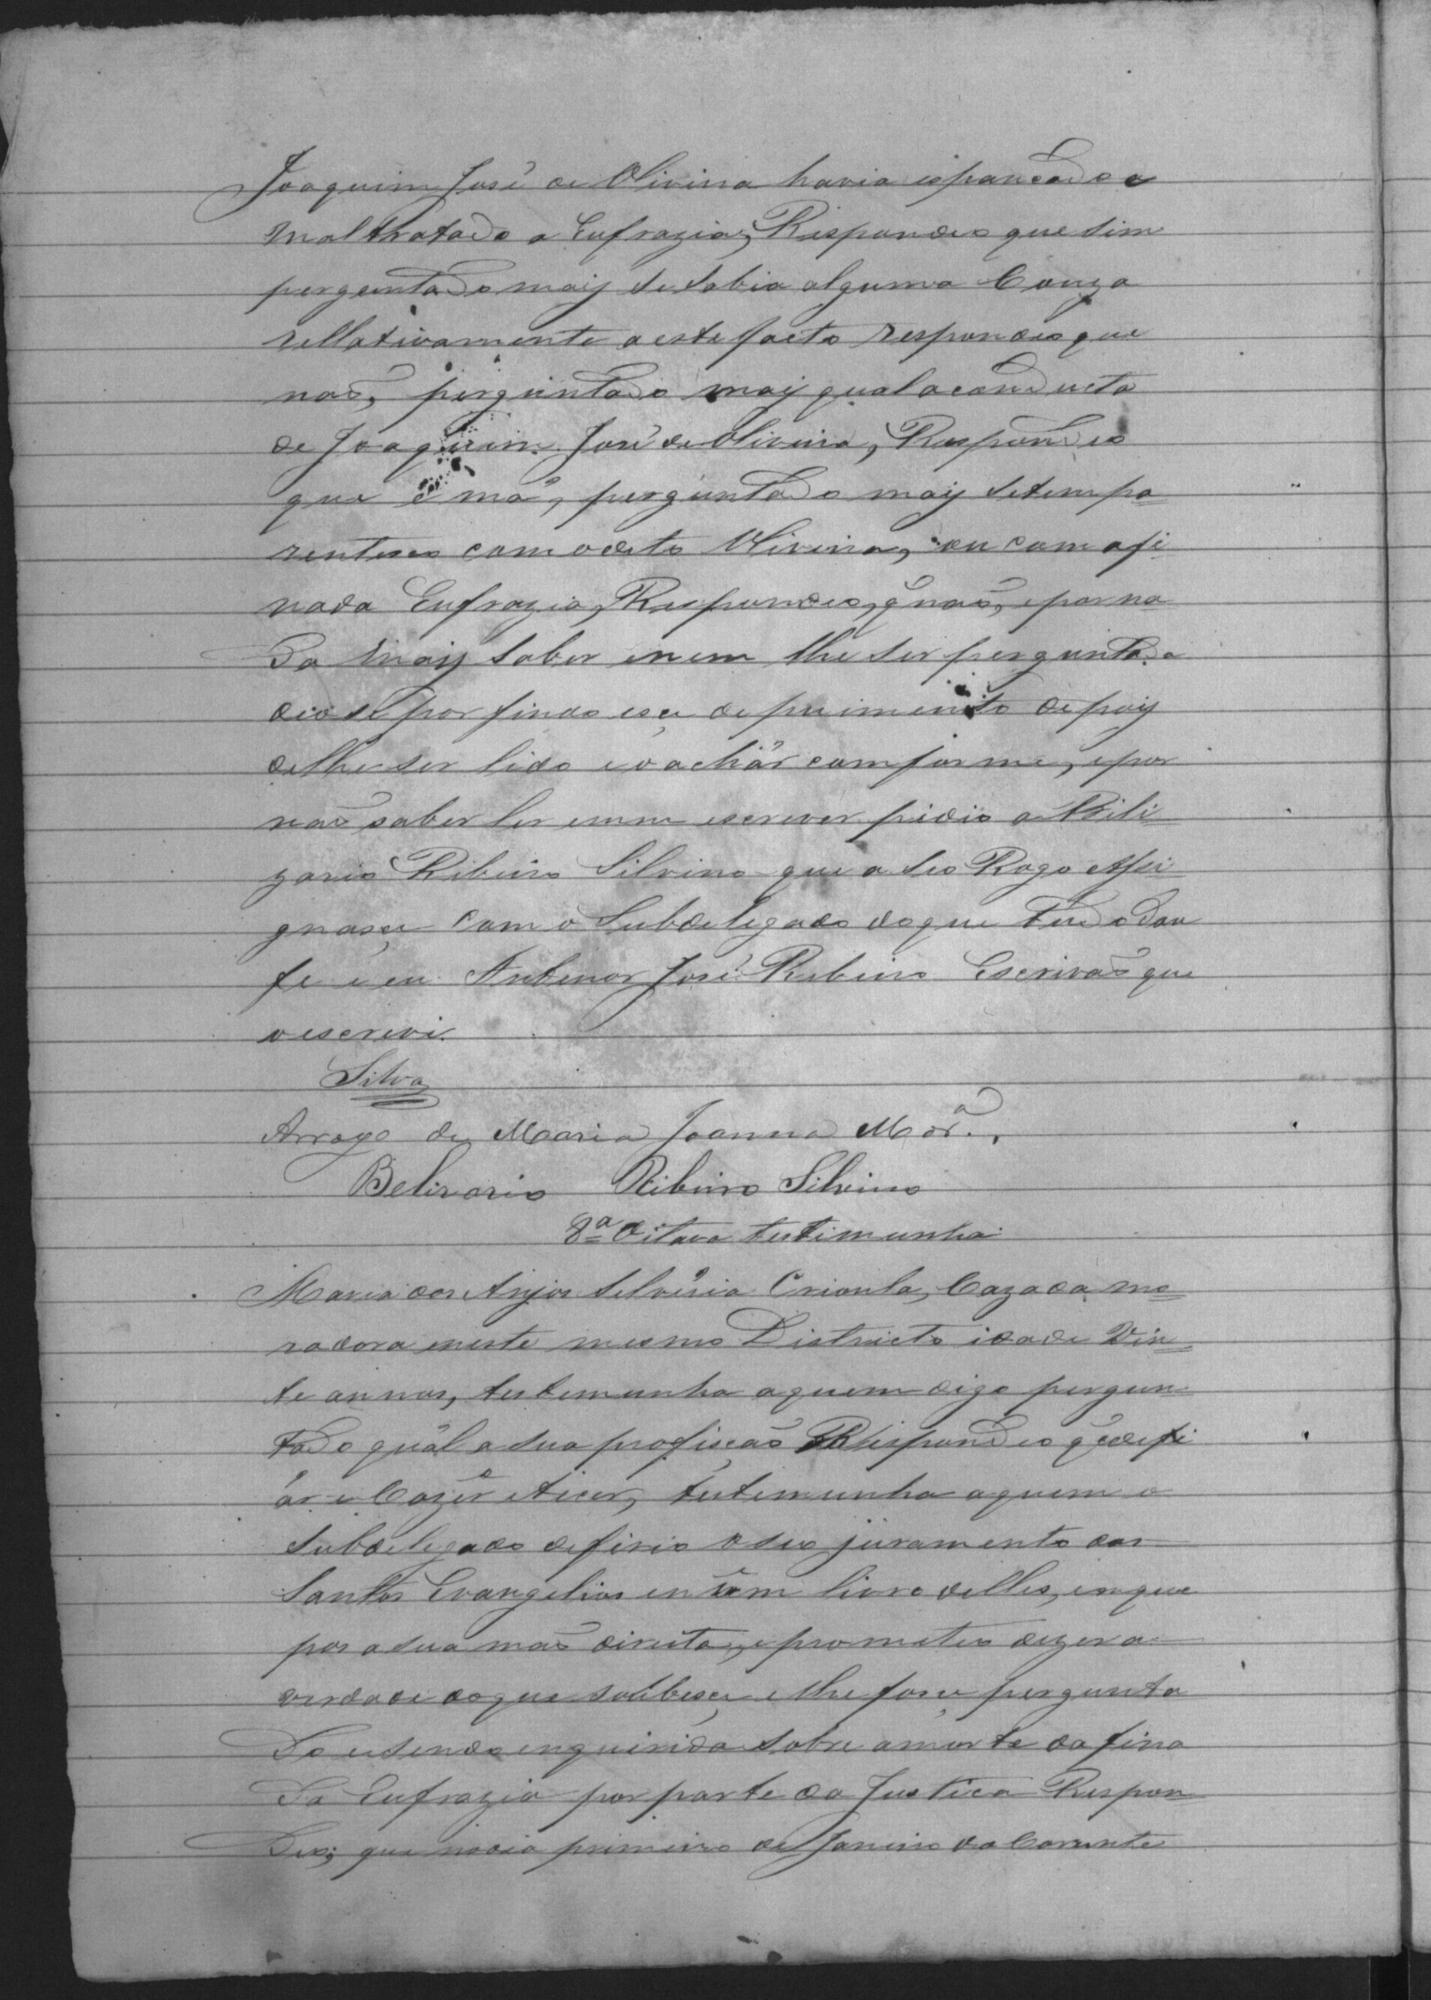 Joaquim José de Oliveira havia espancado e
maltratado a Eufrazia, Respondeo que sim
perguntado mais se sabia alguma Couza
rellativamente a este facto respondeo que
não, perguntado mais qual a conducta
de Joaquim José de Oliveira, Respondeo
que é má, perguntado mais se tem pa=
rentesco com o dito Oliveira, ou com a fi=
nada Eufrazia, Respondeo, q̃ não, e por na
da mais saber e nem lhe ser perguntado
deose por findo esse depuimento depois
delhe ser lido e o achár comforme, e por
não saber ler e nem escrever pidio a Bili=
zario Ribeiro Silvino que a seo Rogo assi=
gnase com o Subdelegado do que tudo dou
fé e eu Antenor José Ribeiro Escrivão que
o escrevi.
Silva
Arrogo de Maria Joanna Mor.ª,
Belizario Ribeiro Silvino
8ª Oitava testimunha
Maria dos Anjos Silvéria Crioula, Cazada mo=
radora neste mesmo Districto idade Vin=
te annos, testemunha aquem digo pergun=
tado quál a sua profissão Respondeo q̃ é de fi
ár e Cozêr etecer, testemunha aquem o
Subdelegado defirio o seo juramento dos
Santos Evangelios em um livro delles, em que
pos a sua mão direita, e prometeo dizer a
verdade do que soubese e lhe fose pergunta
do e sendo enquirida sobre a morte da fina
da Eufrazia por parte da Justiça Respon=
deo; que no dia primeiro de Janeiro do Corrente